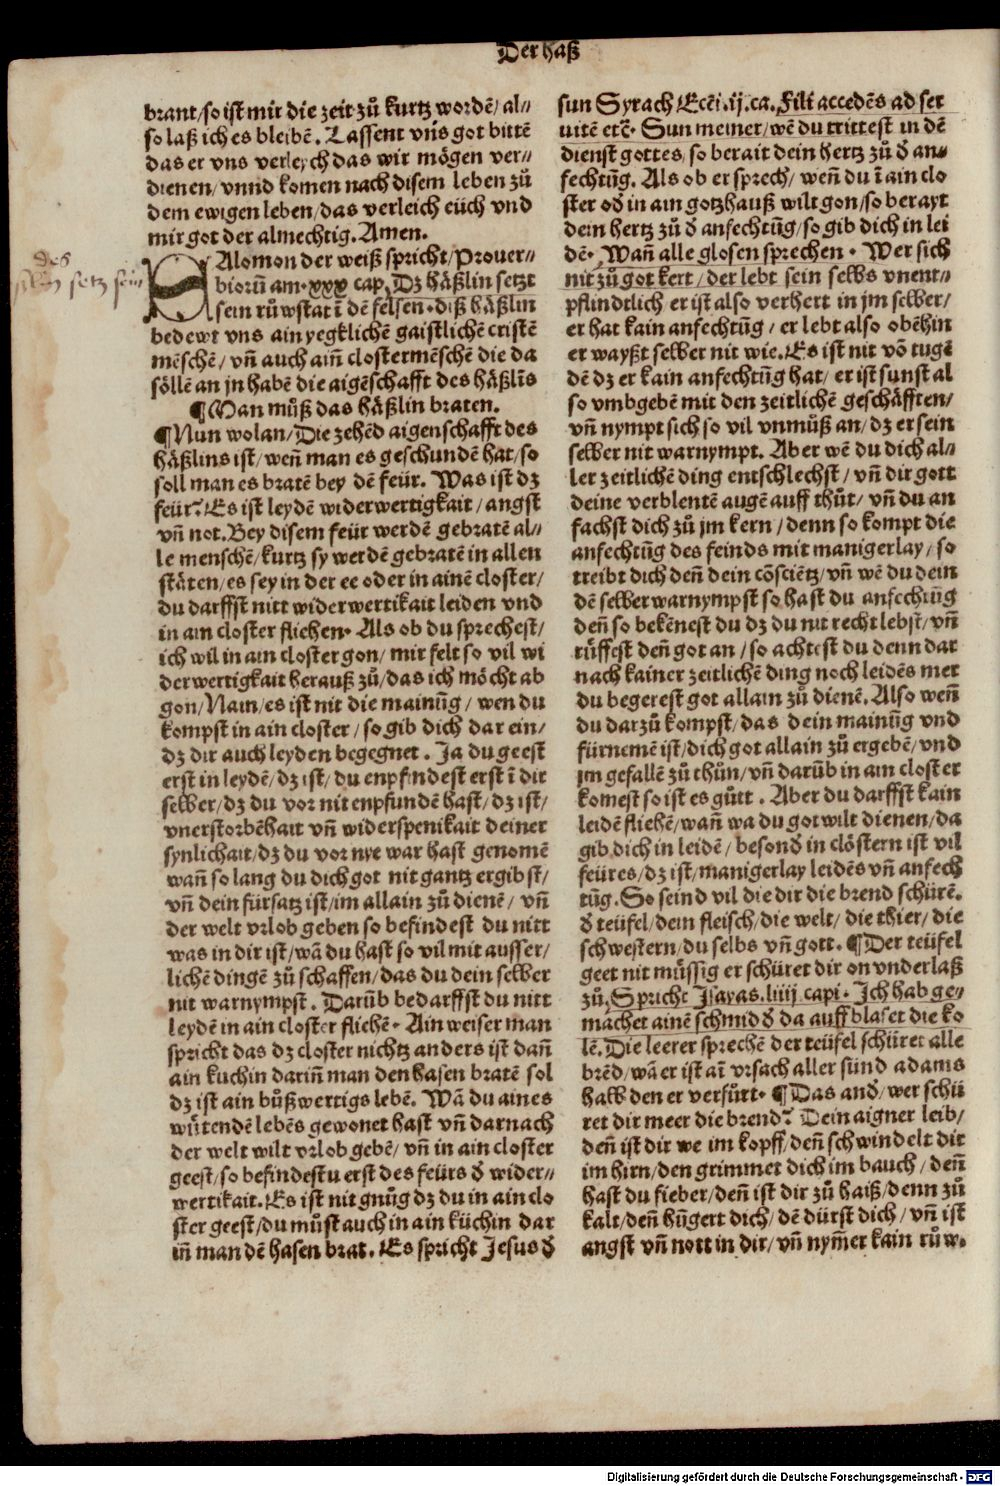 Der haß
brant/so ist mir die zeit zů kurtz wordē/al⸗
so laß ich es bleibē. Lassent vns got bittē
das er vns verleych das wir mögen ver⸗
dienen/vnnd komen nach disem leben zů
dem ewigen leben/das verleich eüch vnd
mir got der almechtig. Amen.
des
setz sein
SAlomon der weiß spricht/Prouer⸗
biorū am. xxx cap. Dz häßlin setzt
sein růwstat ī dē felsen. diß häßlin
bedewt vns ain yegklichē gaistlichē cristē
mēschē/vn̄ auch ain̄ clostermēschē die da
söllē an jn habē die aigēschafft des häßlīs
¶Man můß das häßlin braten.
¶Nun wolan/Die zehēd aigenschafft des
häßlins ist/wen̄ man es geschundē hat/so
soll man es bratē bey dē feür. Was ist dz
feür? Es ist leydē widerwertigkait/angst
vn̄ not. Bey disem feür werdē gebratē al⸗
le menschē/kurtz sy werdē gebratē in allen
stäten/es sey in der ee oder in ainē closter/
du darffst nitt widerwertikait leiden vnd
in ain closter fliehen. Als ob du sprechest/
ich wil in ain closter gon/mir felt so vil wi
derwertigkait herauß zů/das ich möcht ab
gon/Nain/es ist nit die mainūg/wen du
kompst in ain closter/so gib dich dar ein/
dz dir auch leyden begegnet. Ja du geest
erst in leydē/dz ist/du enpfindest erst ī dir
selber/dz du vor nit enpfundē hast/dz ist/
vnerstorbēhait vn̄ widerspenikait deiner
synlichait/dz du vor nye war hast genomē
wan̄ so lang du dich got nit gantz ergibst/
vn̄ dein fürsatz ist/im allain zů dienē/vn̄
der welt vrlob geben so befindest du nitt
was in dir ist/wā du hast so vil mit ausser/
lichē dingē zů schaffen/das du dein selber
nit warnympst. Darūb bedarffst du nitt
leydē in ain closter fliehē. Ain weiser man
spricht das dz closter nichtz anders ist dan̄
ain kuchin darin̄ man den hasen bratē sol
dz ist ain bůßwertigs lebē. Wā du aines
wütendē lebēs gewonet hast vn̄ darnach
der welt wilt vrlob gebē/vn̄ in ain closter
geest/so befindestu erst des feürs d̄ wider⸗
wertikait. Es ist nit gnūg dz du in ain clo
ster geest/du můst auch in ain küchin dar
in̄ man dē hasen brat. Es spricht Jesus d̄
sun Syrach Eccī.ij.ca. Fili accedēs ad ser
uitē etc̄. Sun meiner/wē du trittest in dē
dienst gottes/so berait dein hertz zů d̄ an⸗
fechtūg. Als ob er sprech/wen̄ du ī ain clo
ster od̄ in ain gotzhauß wilt gon/so berayt
dein hertz zů d̄ anfechtūg/so gib dich in lei
dē. Wan̄ alle glosen sprechen. Wer sich
nit zů got kert/der lebt sein selbs vnent⸗
pflindtlich er ist also verhert in jm selber/
er hat kain anfechtūg/er lebt also obēhin
er wayßt selber nit wie. Es ist nit vō tugē
dē dz er kain anfechtūg hat/er ist sunst al
so vmbgebē mit den zeitlichē geschäfften/
vn̄ nympt sich so vil vnmůß an/dz er sein
selber nit warnympt. Aber wē du dich al⸗
ler zeitlichē ding entschlechst/vn̄ dir gott
deine verblentē augē auff thůt/vn̄ du an
fachst dich zů jm kern/denn so kompt die
anfechtūg des feinds mit manigerlay/so
treibt dich den̄ dein cōsciētz/vn̄ wē du dein
dē selber warnympst so hast du anfechtūg
den̄ so bekēnest du dz du nit recht lebst/vn̄
rüffest den̄ got an/so achtest du denn dar
nach kainer zeitlichē ding noch leidēs mer
du begerest got allain zů dienē. Also wen̄
du darzů kompst/das dein mainūg vnd
fürnemē ist/dich got allain zů ergebē/vnd
jm gefallē zů thůn/vn̄ darūb in ain closter
komest so ist es gůtt. Aber du darffst kain
leidē fliehē/wan̄ wa du got wilt dienen/da
gib dich in leidē/besond̄ in clöstern ist vil
feüres/dz ist/manigerlay leidēs vn̄ anfech
tūg. So seind vil die dir die brend schürē.
d̄ teüfel/dein fleisch/die welt/die thier/die
schwestern/du selbs vn̄ gott. ¶Der teüfel
geet nit müssig er schüret dir on vnderlaß
zů. Spricht Jsayas.liiij capi. Jch hab ge⸗
machet ainē schmid d̄ da auffblaset die ko
lē. Die leerer sprechē der teüfel schüret alle
brēd/wā er ist aī vrsach aller sünd adams
halb den er verfürt. ¶Das and̄/wer schü
ret dir meer die brend? Dein aigner leib/
den̄ ist dir we im kopff/den̄ schwindelt dir
im hirn/den grimmet dich im bauch/den̄
hast du fieber/den̄ ist dir zů haiß/denn zů
kalt/den̄ hūgert dich/dē dürst dich/vn̄ ist
angst vn̄ nott in dir/vn̄ nym̄er kain růw.
Digitalisierung gefördert durch die Deutsche Forschungsgemeinschaft - DFG